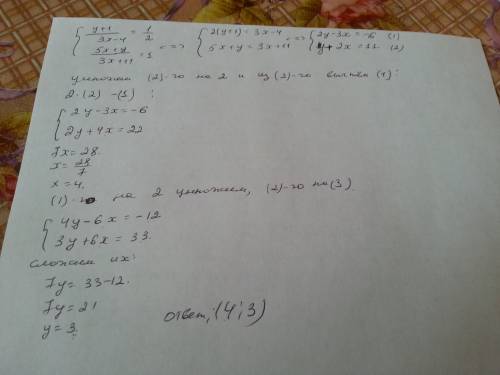 { (y+1)/(3x-4) = 1/2 ; (5x+y)/(3x+11) = 1 <=> { 2(y+1) = 3x-4 ; 5x+y = 3x+11 <=> { 2y-3x = -6 (1) ; y+2x = 11. (2)
умножим (2)-го на 2 и из (2)-го вычтем (1):
2·(2) - (1) :
{ 2y-3x = -6
2y+4x = 22
7x = 28.
x = 28/7
x = 4.
(1)-го на 2 умножаем, (2)-го на (3).
{ 4y-6x = -12
3y+6x = 33.
сложаем их:
7y = 33-12.
7y = 21
y = 3.
ответ: (4; 3)